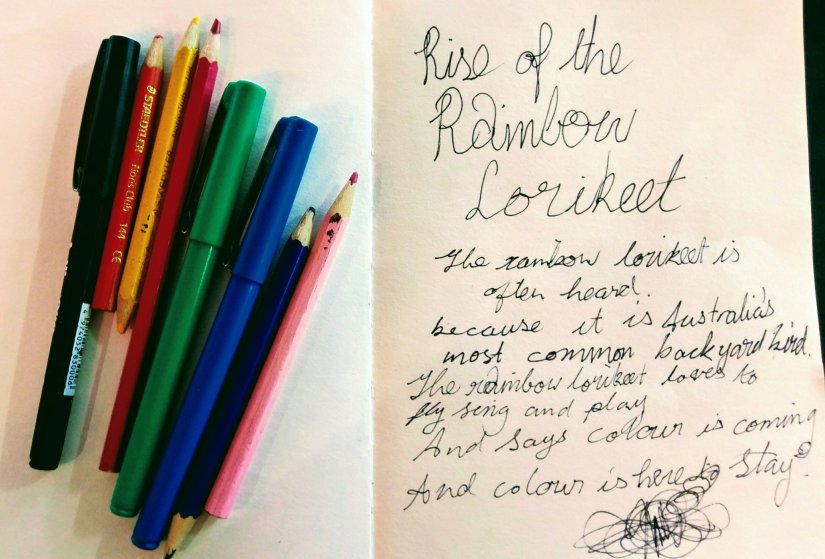 STAEDTLER Noris Club 144 CE
Rise of the
Rainbow
Lorikeet
The rainbow lorikeet is
often heard.
because it is Australia's
most common backyard bird.
The rainbow lorikeet loves to
fly sing and play
And says colour is coming
And colour is here to stay.